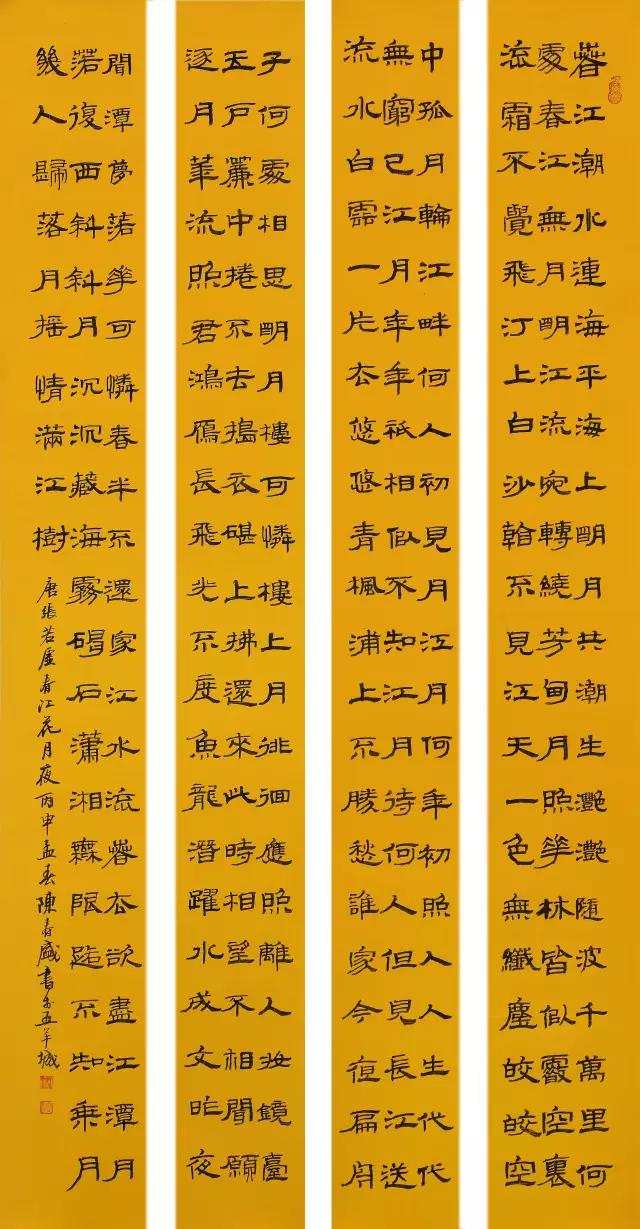 春江潮水連海平海上明月共潮生灩灩隨波千萬里何
處春江無月明江流宛轉繞芳甸月照華林皆似霰空裏
流霜不覺飛汀上白沙看不見江天一色無纖塵皎皎空
中孤月輪江畔何人初見月江月何年初照人人生代代
無窮已江月年年祗相似不知江月待何人但見長江送
流水白雲一片去悠悠青楓浦上不勝愁誰家今夜扁舟
子何處相思明月樓可憐樓上月徘徊應照離人妝鏡臺
玉戶簾中捲不去搗衣碪上拂還來此時相望不相聞願
逐月華流照君鴻鴈長飛光不度魚龍潛躍水成文昨夜
閒潭夢落華可憐春半不還家江水流春去欲盡江潭月
落復西斜斜月沉沉藏海霧碣石瀟湘無限路不知乘月
幾人歸落月搖情滿江樹
唐張若虛春江花月夜丙申孟春陳春盛書於五羊城